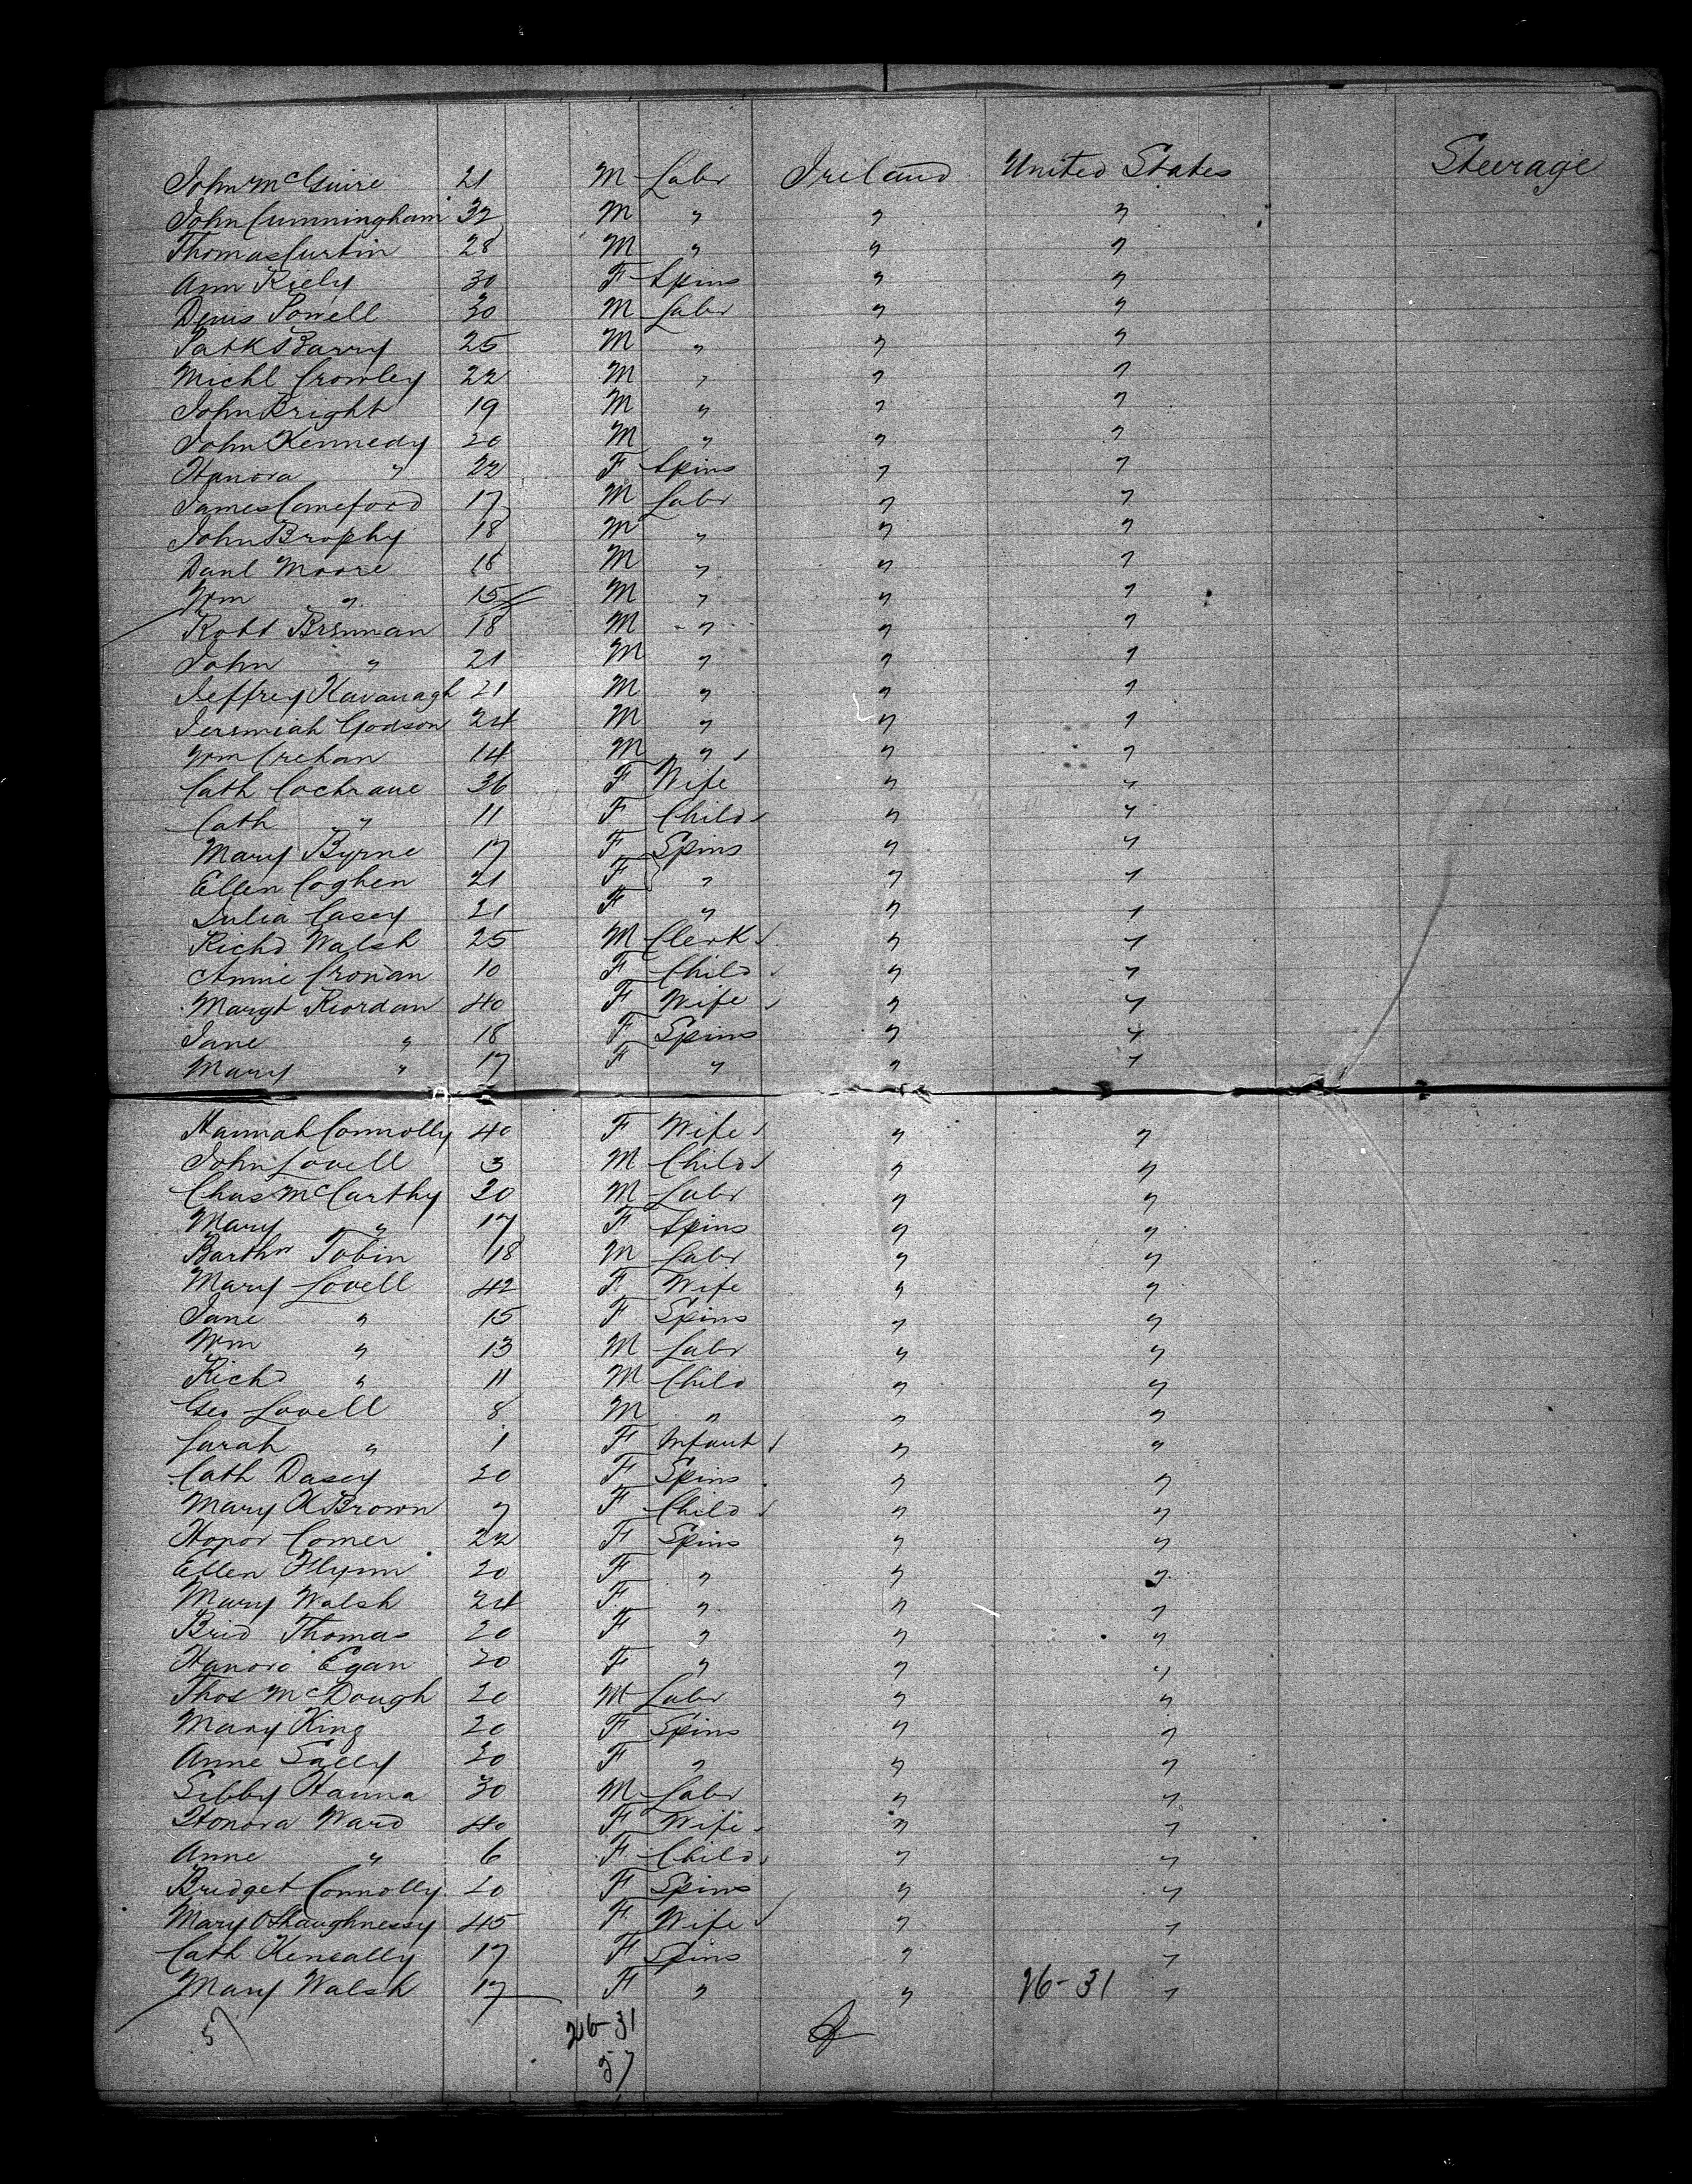 John McGuire 21 M Labr Ireland United States Steerage
John Cunningham 32 M " " "
Thomas Curtin 28 M " " "
Ann Riely 30 F Spins " "
Denis Powell 30 M Labr " "
Patk Barry 25 M " " "
Michl Crowley 22 M " " "
John Bright 19 M " " "
John Kennedy 20 M " " "
Hanora " 22 F Spins " "
James Comeford 17 M Labr " "
John Brophy 18 M " " "
Danl Moore 18 M " " "
Wm " 15 M " " "
Robt Brennan 18 M " " "
John " 21 M " " "
Jeffrey Kavanagh 21 M " " "
Jeremiah Godson 24 M " " "
Wm Crehan 14 M " " "
Cath Cochrane 36 F Wife " "
Cath " 11 F Child " "
Mary Byrne 17 F Spins " "
Ellen Coghen 21 F " " "
Julia Casey 21 F " " "
Richd Walsh 25 M Clerk " "
Annie Cronan 10 F Child " "
Margt Riordan 40 F Wife " "
Jane " 18 F Spins " "
Mary " 17 F " " "
Hannah Connolly 40 F Wife " "
John Lovell 3 M Child " "
Chas McCarthy 20 M Labr " "
Mary " 17 F Spins " "
Barthw Tobin 18 M Labr " "
Mary Lovell 42 F Wife " "
Jane " 15 F Spins " "
Wm " 13 M Labr " "
Richd " 11 M Child " "
Geo Lovell 8 M " " "
Sarah " 1 F Infant " "
Cath Dasey 20 F Spins " "
Mary K Brown 7 F Child " "
Honor Comer 22 F Spins " "
Ellen Flynn 20 F " " "
Mary Walsh 24 F " " "
Brid Thomas 20 F " " "
Hanora Egan 20 F " " "
Thos McDough 20 M Labr " "
Mary King 20 F Spins " "
Anne Sally 20 F " " "
Sibby Hanna 30 M Labr " "
Honora Ward 40 F Wife " "
Anne " 6 F Child " "
Bridget Connolly 20 F Spins " "
Mary OShaughnessy 45 F Wife " "
Cath Keneally 17 F Spins " "
Mary Walsh 17 F " " 26-31 "
57 26-31
57